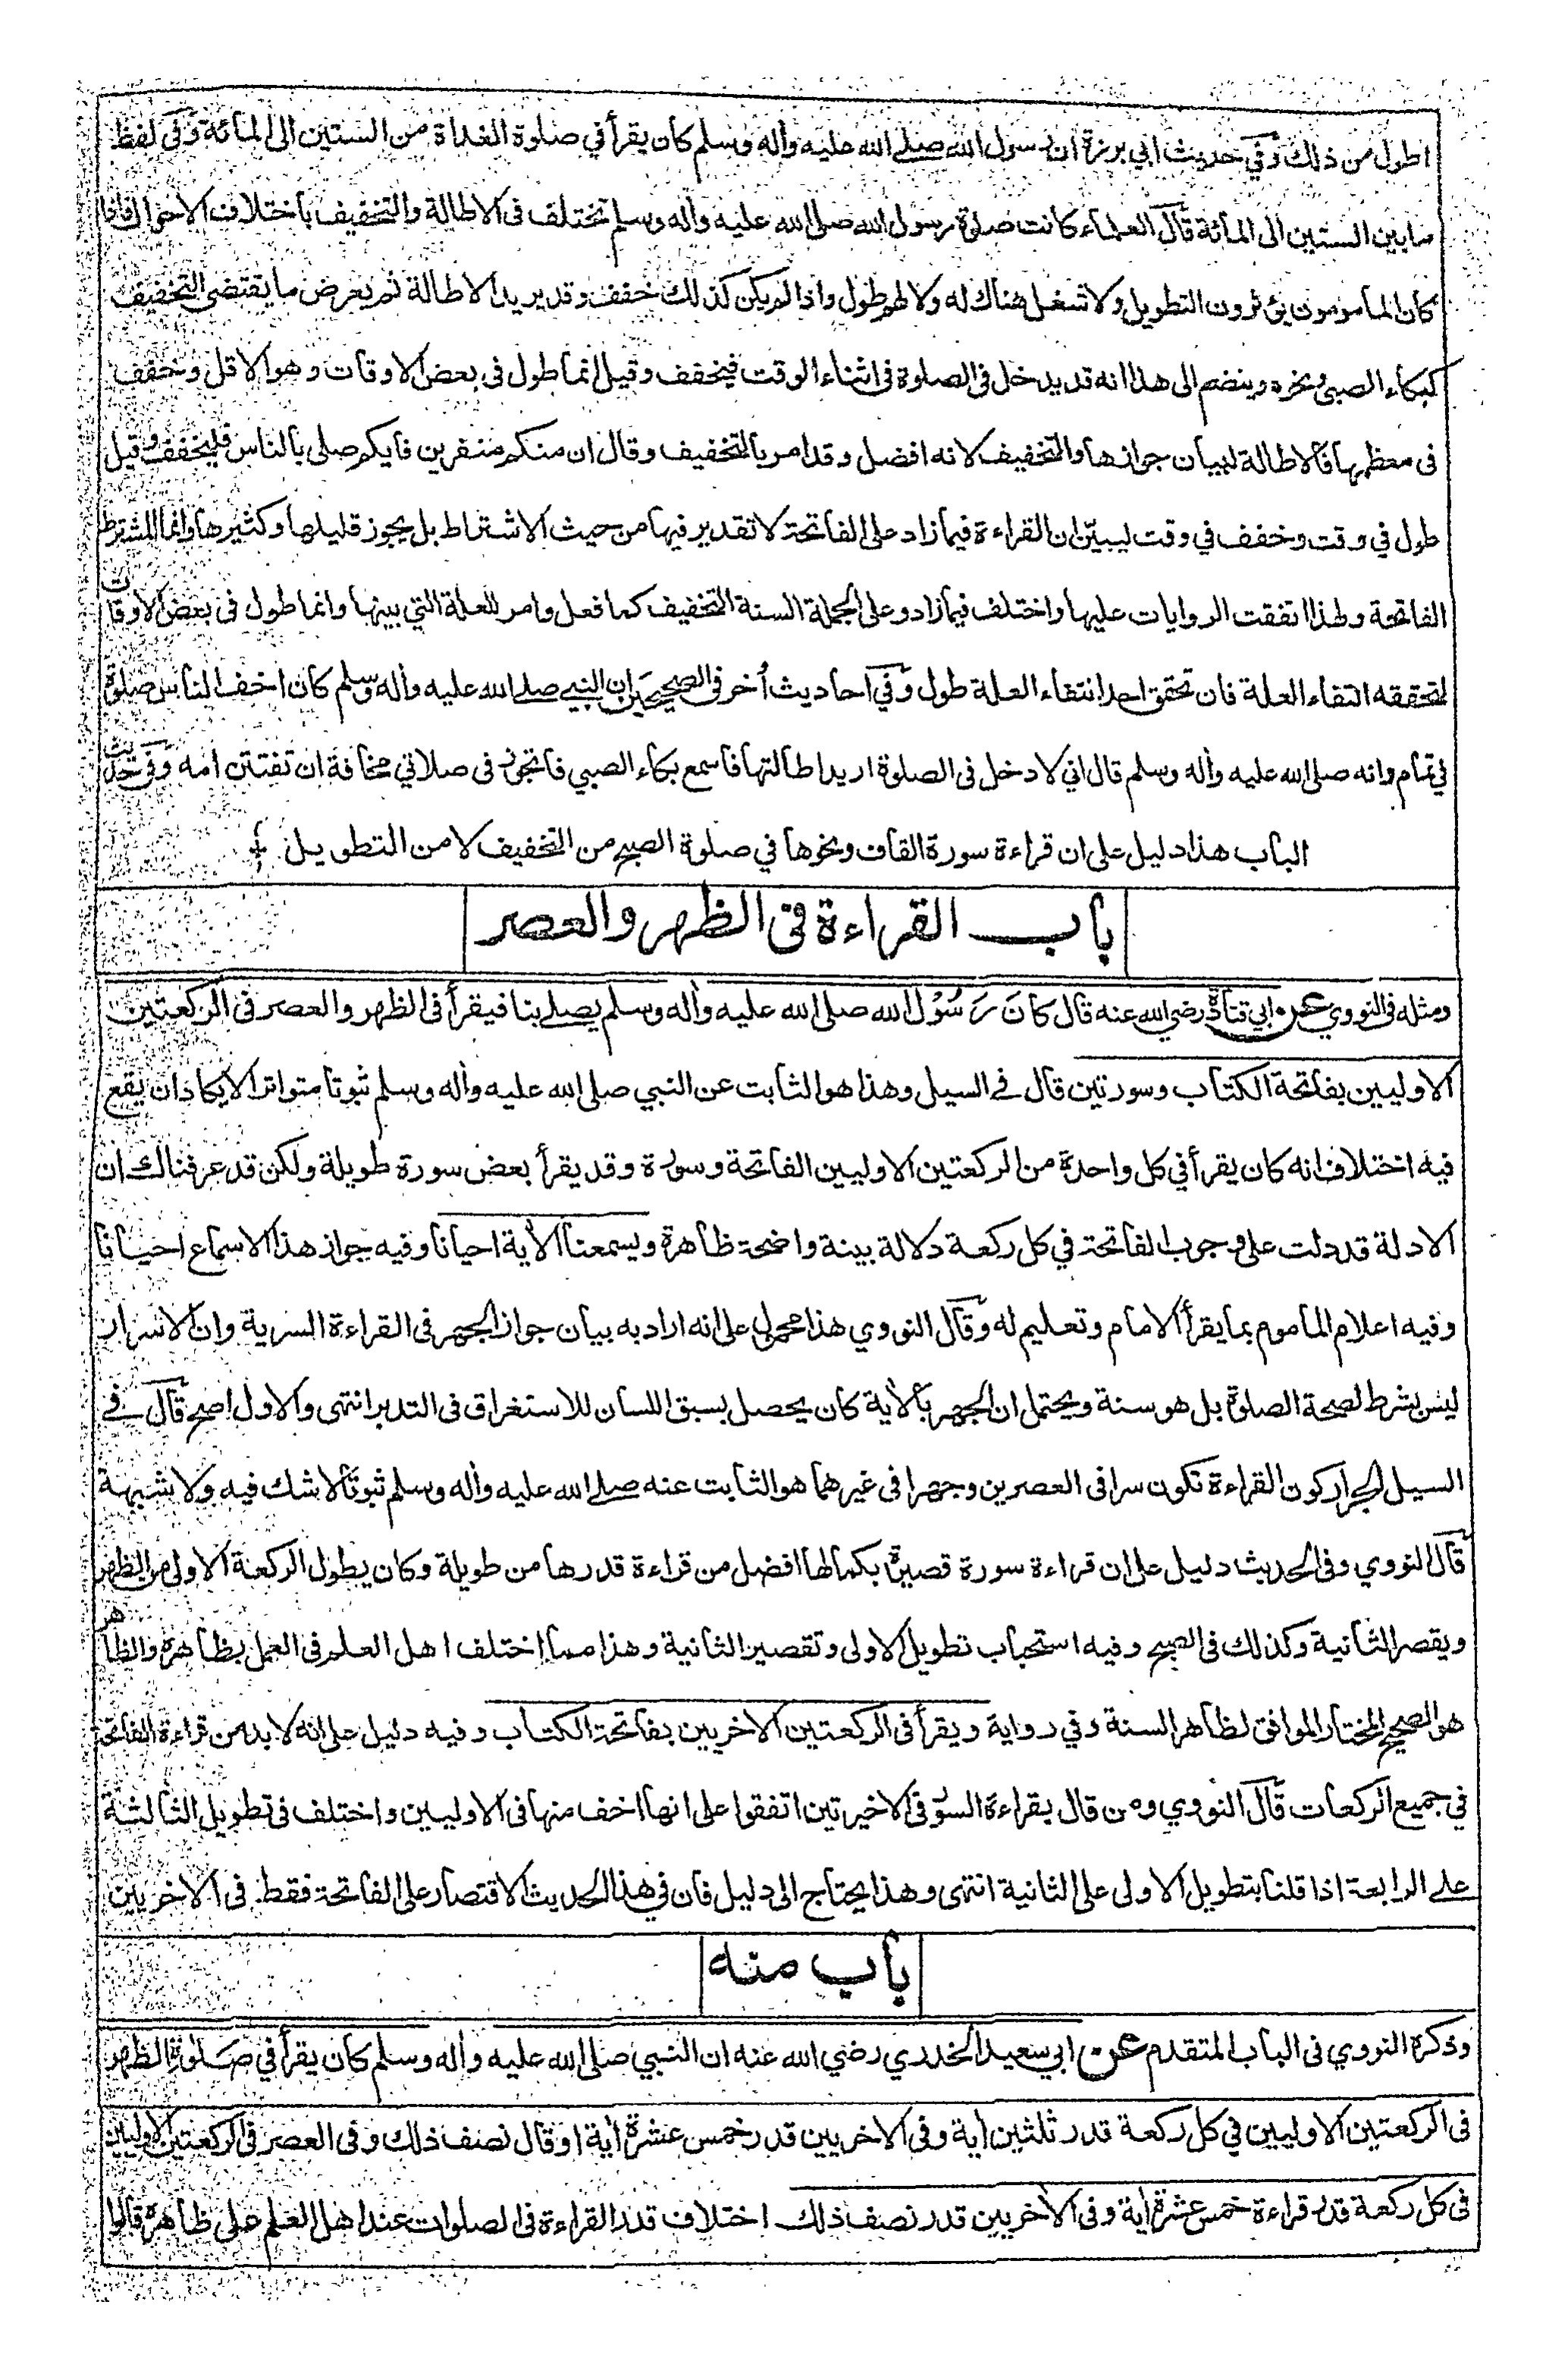 اطول من ذلك وفي حديث ابي برزة ان رسول الله صلى الله عليه واله وسلم كان يقرأ في صلوة الغداة من الستين الى المائة وفي لفظ
مابين الستين الى المائة قال العلماء كانت صلوة رسول الله صلى الله عليه واله وسلم تختلف فى الاطالة والتخفيف باختلاف الاحوال فاذا
كان المأمومون يؤثرون التطويل ولا شغل هناك له ولا لهم طول واذا لم يكن كذلك خفف وقد يريد الاطالة ثم يعرض ما يقتضى التخفيف
كبكاء الصبى ونحوه وينضم الى هذا انه قد يدخل فى الصلوة فى اثناء الوقت فيخفف وقيل انما طول فى بعض الاوقات وهو الاقل وخفف
فى معظمها فالاطالة لبيان جوازها والتخفيف لانه افضل وقد امر بالتخفيف وقال ان منكم منفرين فايكم صلى بالناس فليخفف وقيل
طول في وقت وخفف في وقت ليبين ان القراءة فيما زاد على الفاتحة لا تقدير فيها من حيث الاشتراط بل يجوز قليلها وكثيرها وانما المشترط
الفاتحة ولهذا اتفقت الروايات عليها واختلف فيما زاد وعلى الجملة السنة التخفيف كما فعل وامر للعلة التي بينها وانما طول فى بعض الاوقات
لتحققه انتفاء العلة فان تحقق احد انتفاء العلة طول وفي احاديث أخر فى الصحيحين ان النبي صلى الله عليه واله وسلم كان اخف الناس صلوة
في تمام وانه صلى الله عليه واله وسلم قال اني لادخل فى الصلوة اريد اطالتها فاسمع بكاء الصبي فاتجوز فى صلاتي مخافة ان تفتتن امه وفى حديث
الباب هذا دليل على ان قراءة سورة القاف ونحوها في صلوة الصبح من التخفيف لا من التطويل
باب القراءة فى الظهر والعصر
ومثله فى النووي عن ابي قتادة رضي الله عنه قال كان رَسُوْل الله صلى الله عليه واله وسلم يصلي بنا فيقرأ فى الظهر والعصر فى الركعتين
الاوليين بفاتحة الكتاب وسورتين قال في السيل وهذا هو الثابت عن النبي صلى الله عليه واله وسلم ثبوتا متواترا لا يكاد ان يقع
فيه اختلاف انه كان يقرأ في كل واحدة من الركعتين الاوليين الفاتحة وسورة وقد يقرأ بعض سورة طويلة ولكن قد عرفناك ان
الادلة قد دلت على وجوب الفاتحة في كل ركعة دلالة بينة واضحة ظاهرة ويسمعنا الأية احيانا وفيه جواز هذا الاسماع احيانا
وفيه اعلام المأموم بما يقرأ الامام وتعليم له وقال النووي هذا محمول على انه اراد به بيان جواز الجهر فى القراءة السرية وان الاسرار
ليس بشرط لصحة الصلوة بل هو سنة ويحتمل ان الجهر بالأية كان يحصل بسبق اللسان للاستغراق فى التدبر انتهى والاول اصح قال في
السيل الجرار كون القراءة تكون سرا فى العصرين وجهرا فى غيرهما هو الثابت عنه صلى الله عليه واله وسلم ثبوتا لا شك فيه ولا شبهة
قال النووي وفى الحديث دليل على ان قراءة سورة قصيرة بكمالها افضل من قراءة قدرها من طويلة وكان يطول الركعة الاولى من الظهر
ويقصر الثانية وكذلك فى الصبح وفيه استحباب تطويل الاولى وتقصير الثانية وهذا مما اختلف اهل العلم فى العمل بظاهره والظاهر
هو الصحيح المختار الموافق لظاهر السنة وفي رواية ويقرأ فى الركعتين الاخريين بفاتحة الكتاب وفيه دليل على انه لا بد من قراءة الفاتحة
في جميع الركعات قال النووي ومن قال بقراءة السورة فى الاخيرتين اتفقوا على انها اخف منها فى الاوليين واختلف فى تطويل الثالثة
على الرابعة اذا قلنا بتطويل الاولى على الثانية انتهى وهذا يحتاج الى دليل فان في هذا الحديث الاقتصار على الفاتحة فقط فى الاخريين
باب منه
وذكره النووي فى الباب المتقدم عن ابي سعيد الخدري رضي الله عنه ان النبي صلى الله عليه واله وسلم كان يقرأ في صَلوة الظهر
فى الركعتين الاوليين في كل ركعة قدر ثلثين أية وفى الاخريين قدر خمس عشرة أية او قال نصف ذلك وفى العصر فى الركعتين الاوليين
فى كل ركعة قدر قراءة خمس عشرة أية وفى الاخريين قدر نصف ذلك اختلاف قدر القراءة فى الصلوات عند اهل العلم على ظاهره قالوا